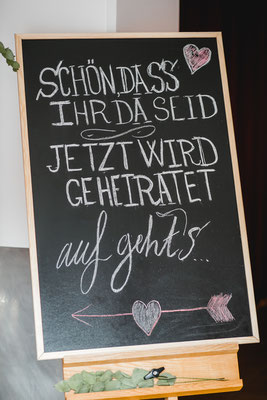 SCHÖN, DASS
IHR DA SEID
JETZT WIRD
GEHEIRATET
auf geht's...